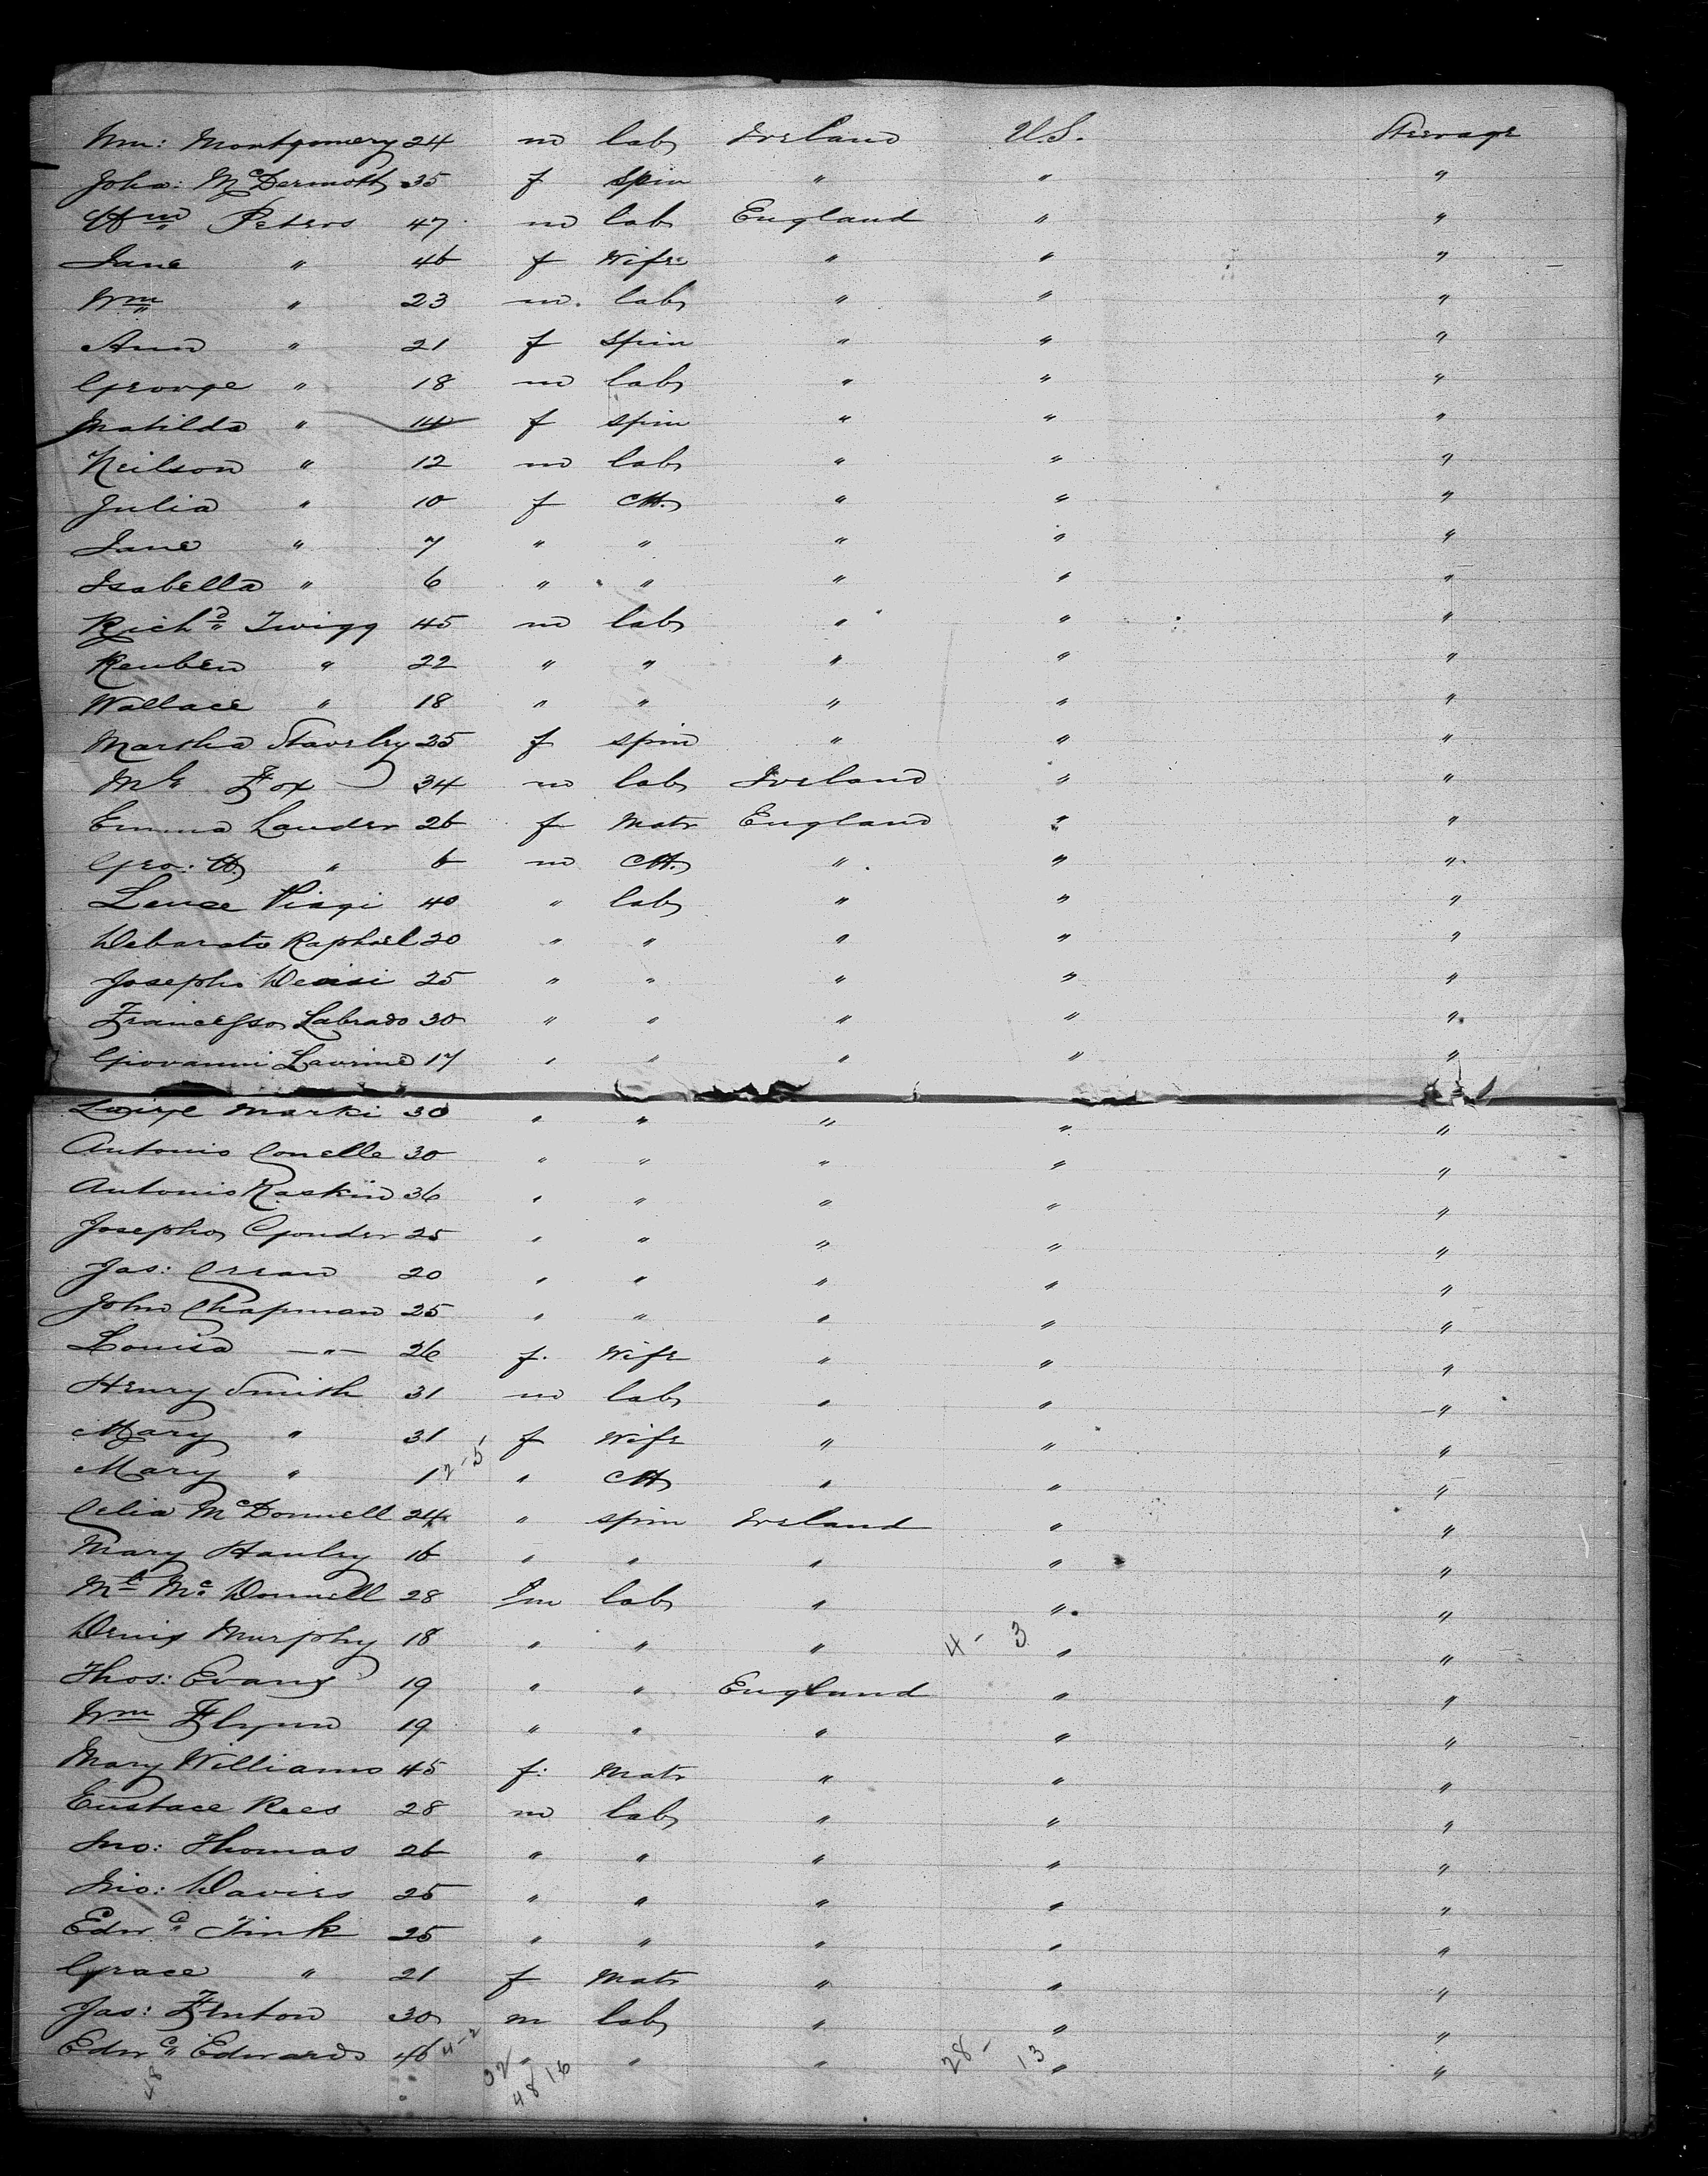 Wm: Montgomery 24 m lab Ireland U.S. Steerage
Joha: McDermott 35 f spin " " "
Wm Peters 47 m lab England " "
Jane " 46 f Wife " " "
Wm " 23 m. lab " " "
Ann " 21 f spin " " "
George " 18 m lab " " "
Matilda " 14 f spin " " "
Neilson " 12 m lab " " "
Julia " 10 f Ch. " " "
Jane " 7 " " " " "
Isabella " 6 " " " " "
Richd Twigg 45 m lab " " "
Reuben " 22 " " " " "
Wallace " 18 " " " " "
Martha Staveley 25 f spin " " "
Ml Fox 34 m lab Ireland " "
Emma Lauder 26 f Matr England " "
Geo: H " 6 m Ch. " " "
40 " lab " " "
Raphael 20 " " " " "
Joseph 25 " " " " "
Labrado 30 " " " " "
Giovanni 17 " " " " "
Marki 30 " " " " "
Antonio Conelle 30 " " " " "
Antonio Raskin 36 " " " " "
Joseph Gonder 25 " " " " "
Jas: Crean 20 " " " " "
John Chapman 25 " " " " "
Louisa — " — 26 f. Wife " " "
Henry Smith 31 m lab " " "
Mary " 31 f Wife " " "
Mary " 1 2-5 " Ch " " "
Celia McDonnell 24 " spin Ireland " "
Mary Hanley 16 " " " " "
Ml Mc Donnell 28 m lab " " "
Denis Murphy 18 " " " 4 - 3 " "
Thos: Evans 19 " " England " "
Wm Flynn 19 " " " " "
Mary Williams 45 f: Matr " " "
Eustace Rees 28 m lab " " "
Jno: Thomas 26 " " " " "
Jno: Davies 25 " " " " "
Edwd Tink 25 " " " " "
Grace " 21 f Matr " " "
Jas: Fenton 30 m lab " " "
Edwd Edwards 46 4-2 " " " 28 - 13 " "
48 32 16
48